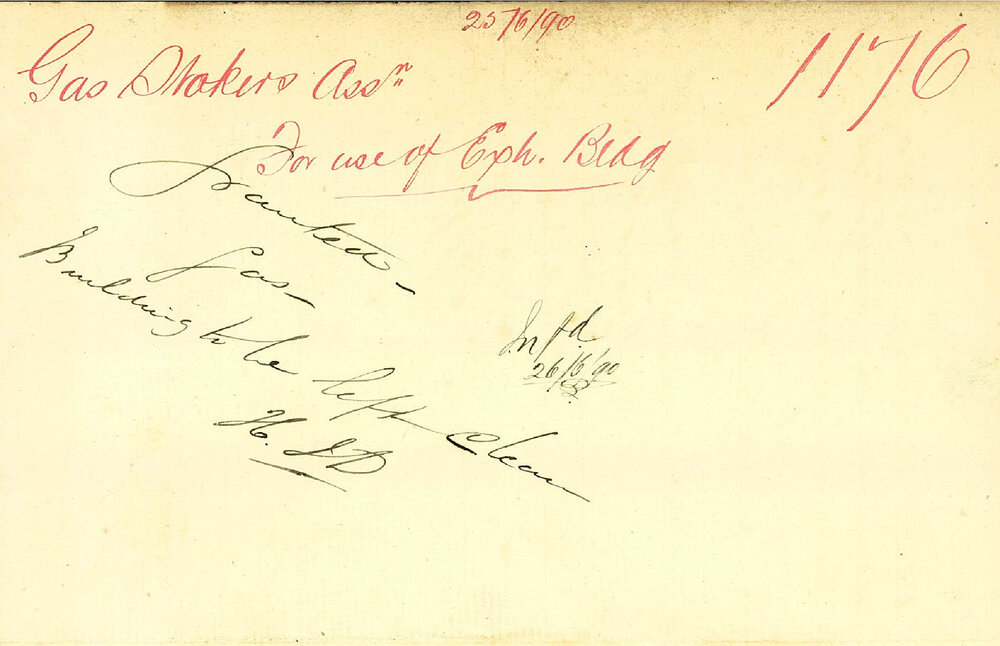 25/6/90
Gas Stokers Assn
1176
For use of Exh. Bldg
Granted -
Gas -
Building to be left clean
H. J D
Infd.
26/6/90